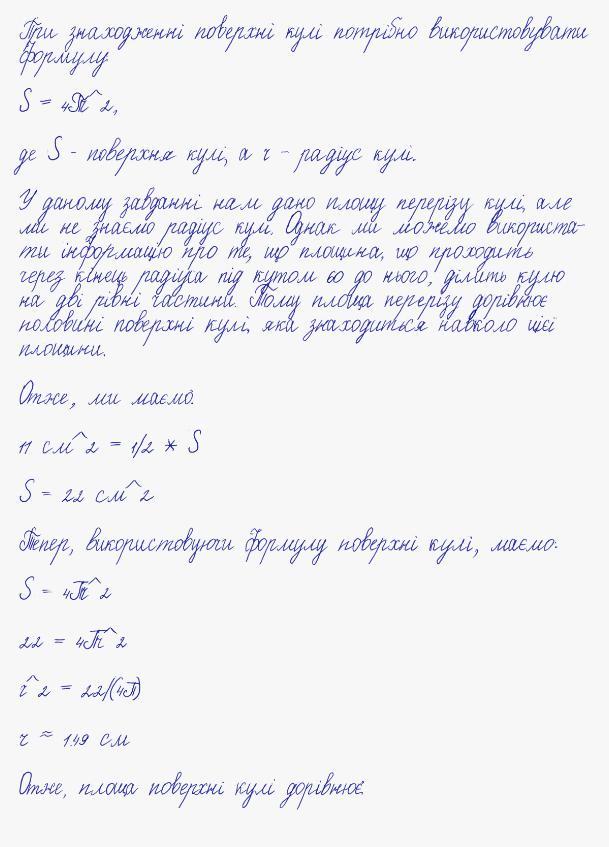 При знаходженні поверхні кулі потрібно використовувати
формулу
S = 4Пr^2,
де S - поверхня кулі, а r - радіус кулі.
У даному завданні нам дано площу перерізу кулі, але
ми не знаємо радіус кулі. Однак ми можемо використа-
ти інформацію про те, що площина, що проходить
через кінець радіуса під кутом 60 до нього, ділить кулю
на дві рівні частини. Тому площа перерізу дорівнює
половині поверхні кулі, яка знаходиться навколо цієї
площини.
Отже, ми маємо:
11 см^2 = 1/2 * S
S = 22 см^2
Тепер, використовуючи формулу поверхні кулі, маємо:
S = 4Пr^2
22 = 4Пr^2
r^2 = 22/(4П)
r ≈ 1.49 см
Отже, площа поверхні кулі дорівнює: